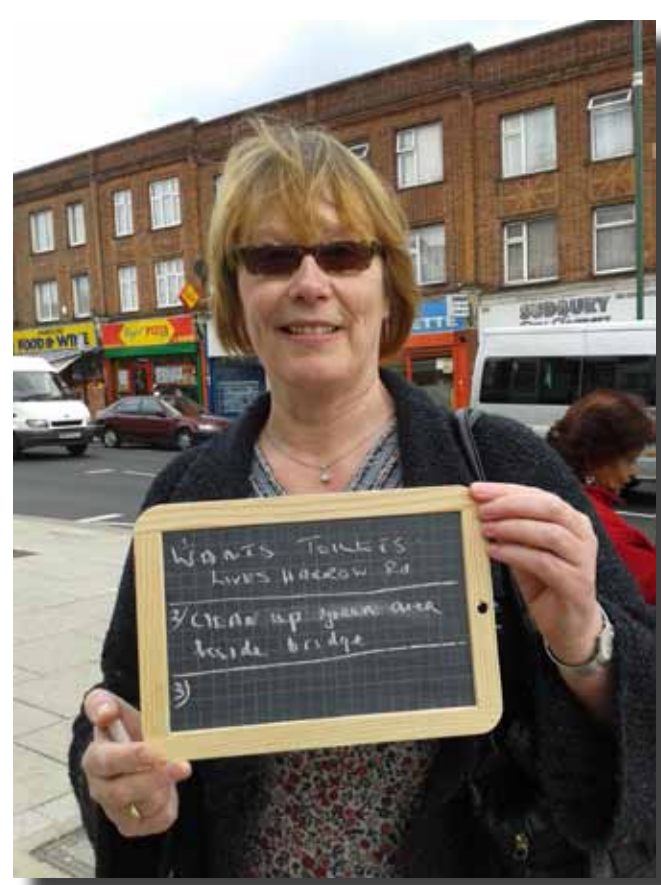 FOOD & WINE
PIZZA
ETTE
SUDBURY
1) WANTS TOILETS
LIVES HARROW RD
2) CLEAN up green area
beside bridge
3)